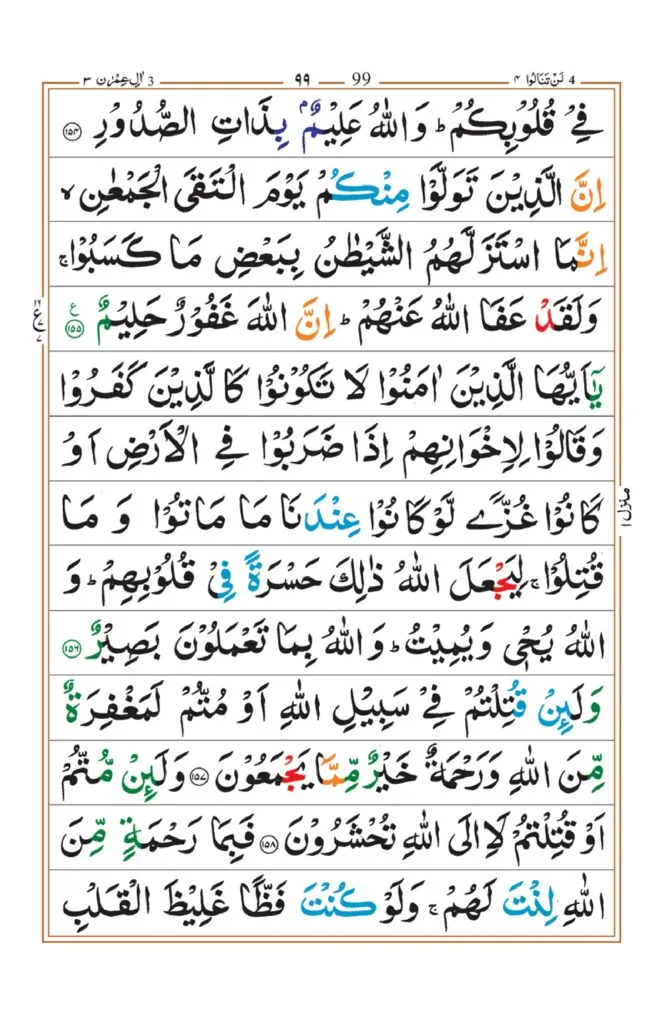 3 اٰلِ عِمْرٰن ٣ ٩٩ 99 لَنْ تَنَالُوا ٤ 4
فِیْ قُلُوْبِكُمْ ؕ وَاللّٰهُ عَلِیْمٌۢ بِذَاتِ الصُّدُوْرِ ۝۱۵۴
اِنَّ الَّذِیْنَ تَوَلَّوْا مِنْكُمْ یَوْمَ الْتَقَی الْجَمْعٰنِ ۙ
اِنَّمَا اسْتَزَلَّهُمُ الشَّیْطٰنُ بِبَعْضِ مَا كَسَبُوْا ۚ
وَلَقَدْ عَفَا اللّٰهُ عَنْهُمْ ؕ اِنَّ اللّٰهَ غَفُوْرٌ حَلِیْمٌ ۝۱۵۵ ع
یٰۤاَیُّهَا الَّذِیْنَ اٰمَنُوْا لَا تَكُوْنُوْا كَالَّذِیْنَ كَفَرُوْا
وَقَالُوْا لِاِخْوَانِهِمْ اِذَا ضَرَبُوْا فِی الْاَرْضِ اَوْ
كَانُوْا غُزًّی لَّوْ كَانُوْا عِنْدَنَا مَا مَاتُوْا وَ مَا
قُتِلُوْا ۚ لِیَجْعَلَ اللّٰهُ ذٰلِكَ حَسْرَةً فِیْ قُلُوْبِهِمْ ؕ وَ
اللّٰهُ یُحْیٖ وَیُمِیْتُ ؕ وَاللّٰهُ بِمَا تَعْمَلُوْنَ بَصِیْرٌ ۝۱۵۶
وَلَىِٕنْ قُتِلْتُمْ فِیْ سَبِیْلِ اللّٰهِ اَوْ مُتُّمْ لَمَغْفِرَةٌ
مِّنَ اللّٰهِ وَرَحْمَةٌ خَیْرٌ مِّمَّا یَجْمَعُوْنَ ۝۱۵۷ وَلَىِٕنْ مُّتُّمْ
اَوْ قُتِلْتُمْ لَاِالَی اللّٰهِ تُحْشَرُوْنَ ۝۱۵۸ فَبِمَا رَحْمَةٍ مِّنَ
اللّٰهِ لِنْتَ لَهُمْ ۚ وَلَوْ كُنْتَ فَظًّا غَلِیْظَ الْقَلْبِ
منزل ١